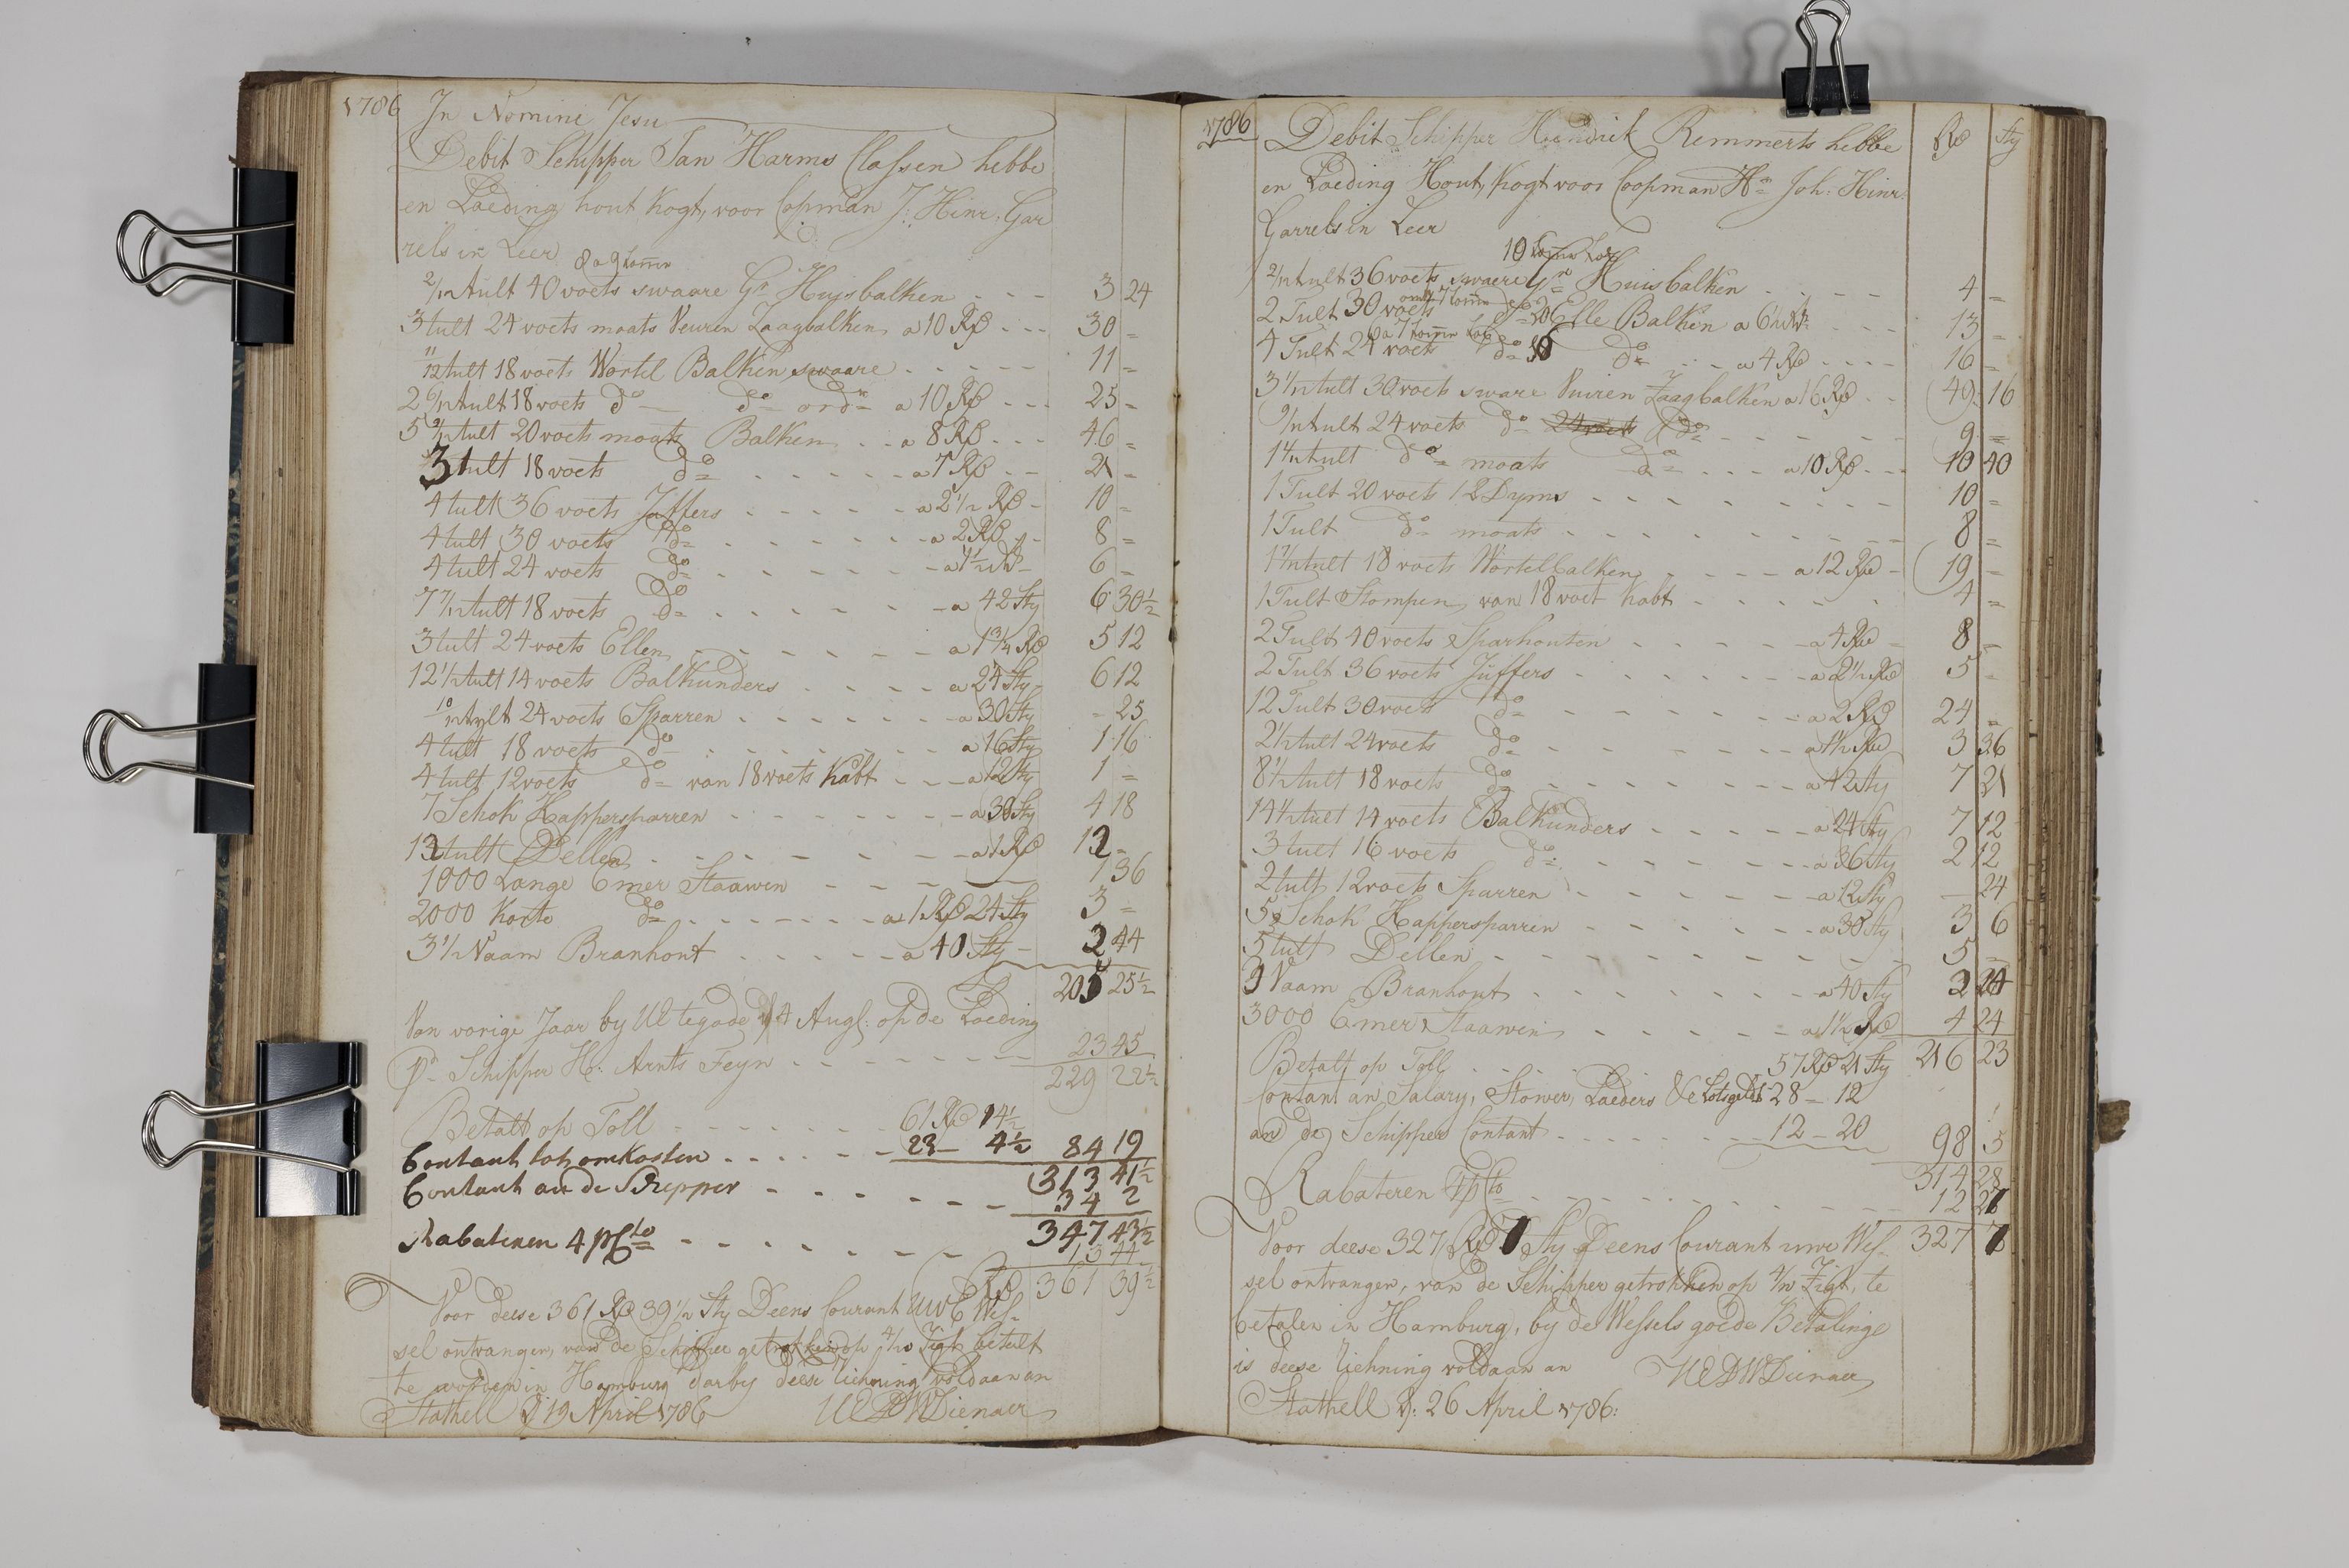 1786 In Nomine Jesu
Debit Schipper Jan Harms Classen hebbe
en Laeding hout kogt, voor Copman J: Hinr: Gar
rels in Leer 8 a 9 komm
2/12 tult 40 voets swaare Gr Huysbalken - - - 3 24
3 tult 24 voets moats Veuren Zaagbalken a 10 R - - - 30 =
11/12 tult 18 voets Wortel Balken swaare - - - - - 11 =
2 6/12 tult 18 voets do — do ordn a 10 R - - - 25 -
5 9/12 tult 20 voets moats Balken - - a 8 R - - - 46 =
3 tult 18 voets do - - - - - a 7 R - - 21 -
4 tult 36 voets Juffers - - - - - a 2 1/2 R - 10 =
4 tult 30 voets do - - - - - - - a 2 R - - 8 =
4 tult 24 voets do - - - - - - - a 1 1/2 R - 6 -
7 7/12 tult 18 voets do - - - - - - a 42 Sty 6 30 1/2
3 tult 24 voets Ellen - - - - - - - a 1 3/4 R 5 12
12 1/2 tult 14 voets Balkunders - - - - a 24 Sty - 6 12
10/12 tylt 24 voets Sparren - - - - - - - a 30 Sty - 25
4 tult 18 voets do - - - - - - - - a 16 Sty 1 16
4 tult 12 voets do van 18 voets kabt - - - a 12 Sty 1 =
7 Schok Happersparren - - - - - - - - a 30 Sty 4 18
12 tult Dellen - - - - - - - - - a 1 R 12 -
1000 Lange Emer Staawen - - - - - 1 36
2000 Korte do - - - - - - - a 1 R 24 Sty 3 =
3 1/2 Vaam Branhout - - - - - a 40 Sty - 2 44
205 25 1/2
Van vorige Jaar by UE tegade 4 Augl: op de Laeding
pr Schipper H: Arnts Feyn - - - - - - - - 23 45
229 22 1/2
Betalt op Toll - - - - - - - 61 R 14 1/2
Contant tot omkosten - - - - - 23 - 4 1/2 84 19
313 41 1/2
Contant an de Schepper - - - - - - - - 34 2
347 43 1/2
Rabateren 4 pCto - - - - - - - - 13 44
R 361 39 1/2
Voor deese 361 R 39 1/2 Sty Deens Courant UWE Wes-
sel ontvangen, van de Schipper getrokken op 4/m Zigt betalt
te worden in Hamburg darby deese Riehning voldaan an
Stathell D 19 April 1786 UEDWDienaer
1786 Debit Schipper Hendrick Remmerts hebbe R Sty
en Laeding Hout, kogt voor Coopman Hn Joh: Hinr:
Garrels in Leer
2/12 tult 36 voets swaere Gr Huisbalken - - - - - 4 =
2 Tult 30 voets do 20 Elle Balken a 6 1/2 R - - - 13 -
4 Tult 24 voets do do - - a 4 R - - - - 16 =
3 1/12 tult 30 voets sware Vuiren Zaagbalken a 16 R - - 49 16
9/12 tult 24 voets do 24 voets do - - - - - - 9 =
1 1/12 tult do moats do - - - a 10 R - - - 10 40
1 Tult 20 voets 12 Dyms - - - - - - - - 10 =
1 Tult do moats - - - - - - - - - 8 =
1 7/12 tult 18 voets Wortelbalken - - - - a 12 R - 19 -
1 Tult Stompen van 18 voet kabt - - - - - 4 =
2 Tult 40 voets Sparhouten - - - - - a 4 R - 8 -
2 Tult 36 voets Juffers - - - - - - - a 2 1/2 R 5 -
12 Tult 30 voets do - - - - - - - a 2 R 24 =
2 1/2 tult 24 voets do - - - - - - - a 1 1/2 R 3 36
8 1/2 tult 18 voets do - - - - - - - a 42 Sty 7 21
14 1/2 tult 14 voets Balkunders - - - - - a 24 Sty 7 12
3 tult 16 voets do - - - - - - - a 36 Sty 2 12
2 tult 12 voets Sparren - - - - - - a 12 Sty — 24
5 Schok Happersparren - - - - - - a 30 Sty 3 6
5 tult Dellen - - - - - - - - - - 5 =
3 Vaam Branhout - - - - - - - a 40 Sty 2 24
3000 Emer Staawen - - - - - - a 1 1/2 R 4 24
Betalt op Toll - - - 57 R 21 Sty 216 23
Contant an Salary, Stower, Laeders &c Lotsgelt 28 - 12
an de Schipper Contant - - - - - - - 12 - 20 98 5
314 28
Rabateren 4 pCto - - - - - - - - 12 27
Voor deese 327 R 7 Sty Deens Courant uwe Wes- 327 7
sel ontvangen, van de Schipper getrokken op 4/m Zigt, te
betalen in Hamburg, by de Wessels goede Betalinge
is deese Riehning voldaan an UEDWDienaer
Stathell D: 26 April 1786: